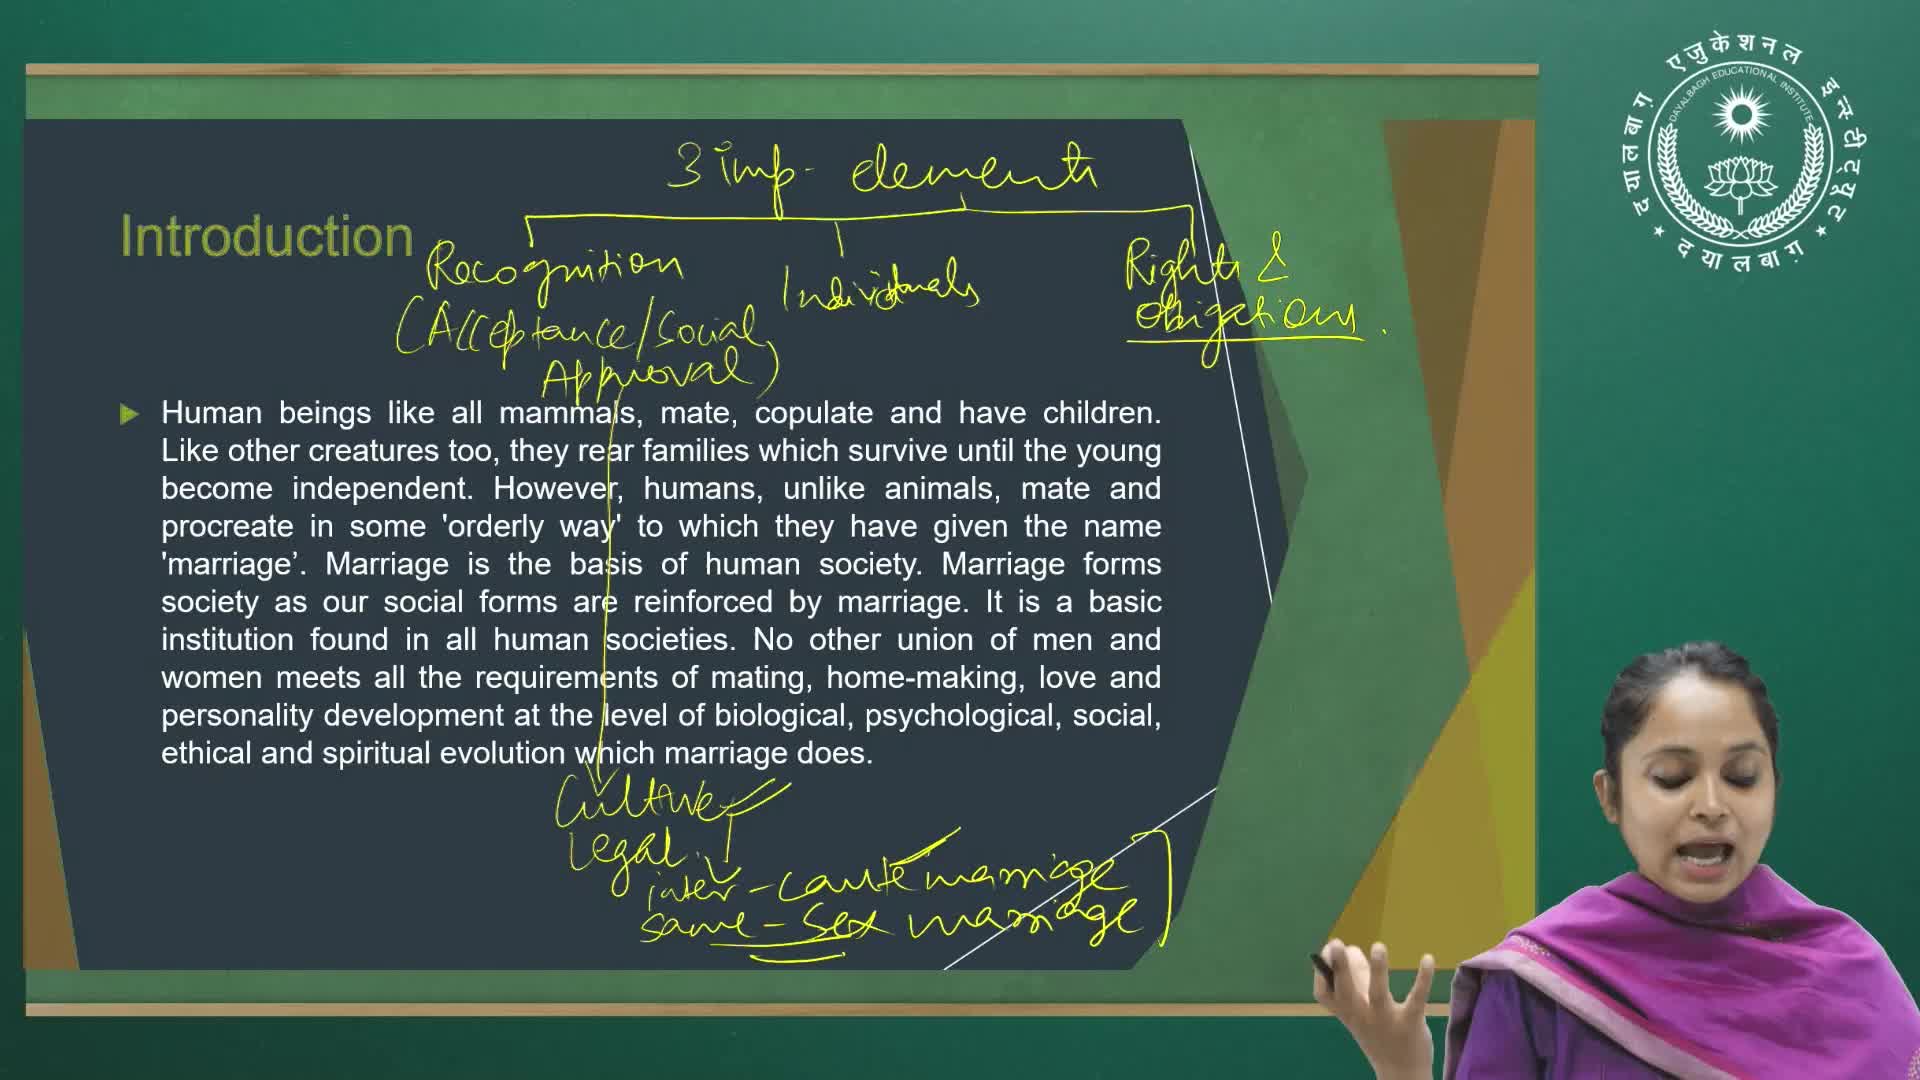 3 imp- elements
Introduction
Recognition
Individuals
Rights &
obligations.
(Acceptance/social
Approval)
Human beings like all mammals, mate, copulate and have children.
Like other creatures too, they rear families which survive until the young
become independent. However, humans, unlike animals, mate and
procreate in some 'orderly way' to which they have given the name
'marriage’. Marriage is the basis of human society. Marriage forms
society as our social forms are reinforced by marriage. It is a basic
institution found in all human societies. No other union of men and
women meets all the requirements of mating, home-making, love and
personality development at the level of biological, psychological, social,
ethical and spiritual evolution which marriage does.
Culture
Legal.
inter-caste marriage
same-sex marriage
दयालबाग़ एजुकेशनल इन्स्टीट्यूट
DAYALBAGH EDUCATIONAL INSTITUTE
* दयालबाग़ *